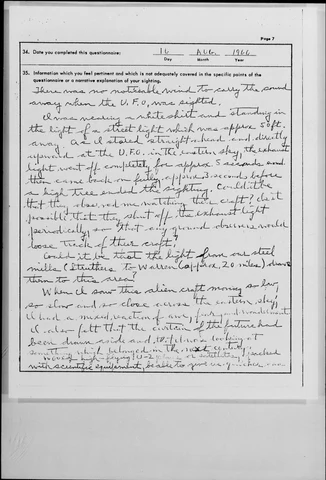 Page 7
34. Date you completed this questionnaire: 16 AUG. 1966
Day Month Year
35. Information which you feel pertinent and which is not adequately covered in the specific points of the
questionnaire or a narrative explanation of your sighting.
There was no noticeable wind to carry the sound
away when the U.F.O. was sighted.
I was wearing a white shirt and standing in
the light of a street light which was approx 50 ft.
away. As I stared straight ahead and directly
upward at the U.F.O. in the eastern sky, the exhaust
light went off completely for approx 5 seconds and
then came back on fully approx seconds before
a high tree ended the sighting. Could it be
that they observed me watching their craft? Is it
possible that they shut off the exhaust light
periodically, so that any ground observers would
loose track of their craft?
Could it be that the light from our steel
mills (Struthers to Warren (approx 20 miles) drew
them to this area?
When I saw this alien craft moving so low,
so slow and so close across the eastern sky,
I had a mixed reaction of awe, fear and wonderment
I also felt that the curtain of the future had
been drawn aside and that I was looking at
something which belonged in the next century.
Would high flying U-2 or satellites, packed
with scientific equipment, be able to give us